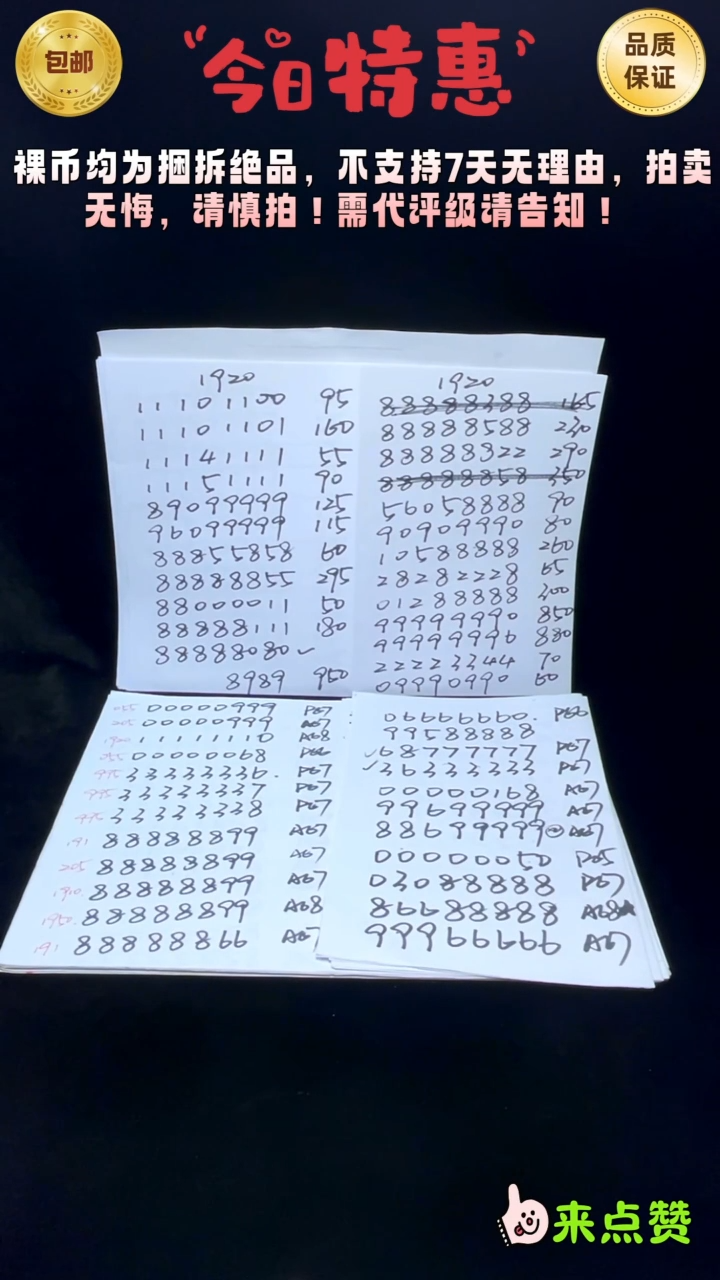 包邮
"今日特惠"
品质
保证
裸币均为捆拆绝品，不支持7天无理由，拍卖
无悔，请慎拍！需代评级请告知！
1920
11101100 95
11101101 160
11141111 55
11151111 90
89099999 125
96099999 115
88855858 60
88888855 295
88000011 50
88888111 180
88888080 ✓
8989 950
1920
88888388 165
88888588 230
88888322 290
88888858 350
56058888 90
90909990 80
10588888 260
28282228 65
01288888 300
99999990 850
99999996 880
22223344 70
09990990 60
00000999 P67
205 00000999 A67
1920 11111110 A68
00000068 P66
995 33333336. P67
995 33333337 P67
995 33333338 P67
191 88888899 A67
205 88888899 A67
1910 88888899 A67
1950 88888899 A68
191 88888866 A67
06666660. P66
99588888
✓68777777 P67
✓36333333 P67
00000168 A67
99699999 A67
88699999 A67
00000050 P65
03088888 P67
86688888 A68★
99966666 A67
来点赞